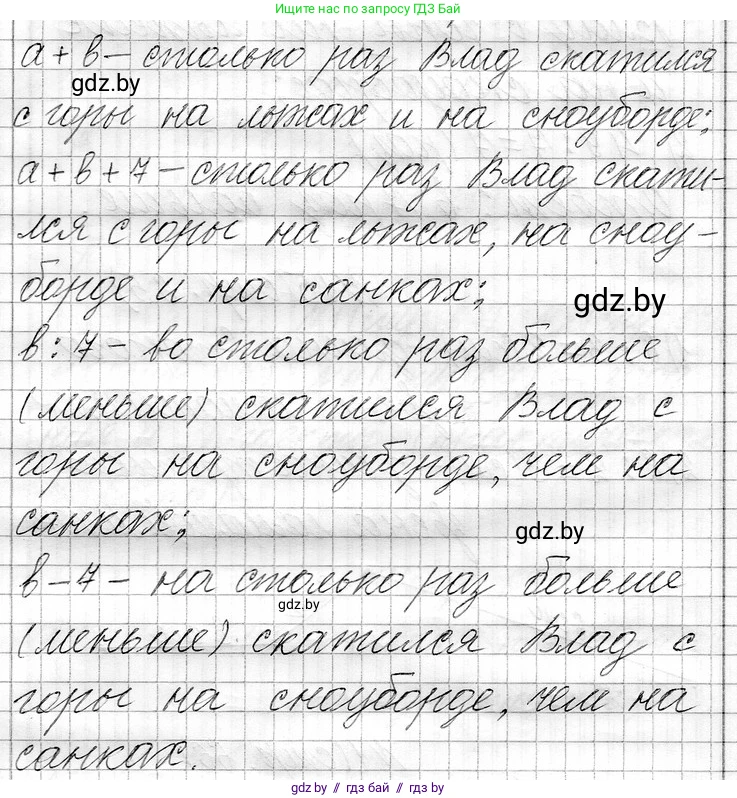 Ищите нас по запросу ГДЗ Бай
a + b – столько раз Влад скатился
gdz.by
с горы на лыжах и на сноуборде;
a + b + 7 – столько раз Влад скати-
лся с горы на лыжах, на сноу-
борде и на санках;
gdz.by
b : 7 – во столько раз больше
(меньше) скатился Влад с
горы на сноуборде, чем на
санках;
gdz.by
b – 7 – на столько раз больше
gdz.by
(меньше) скатился Влад с
горы на сноуборде, чем на
санках.
gdz.by // гдз бай // гдз by